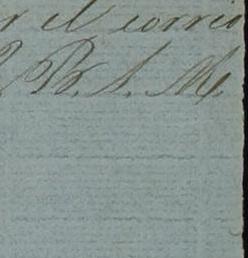 r el correo
B. S. M.